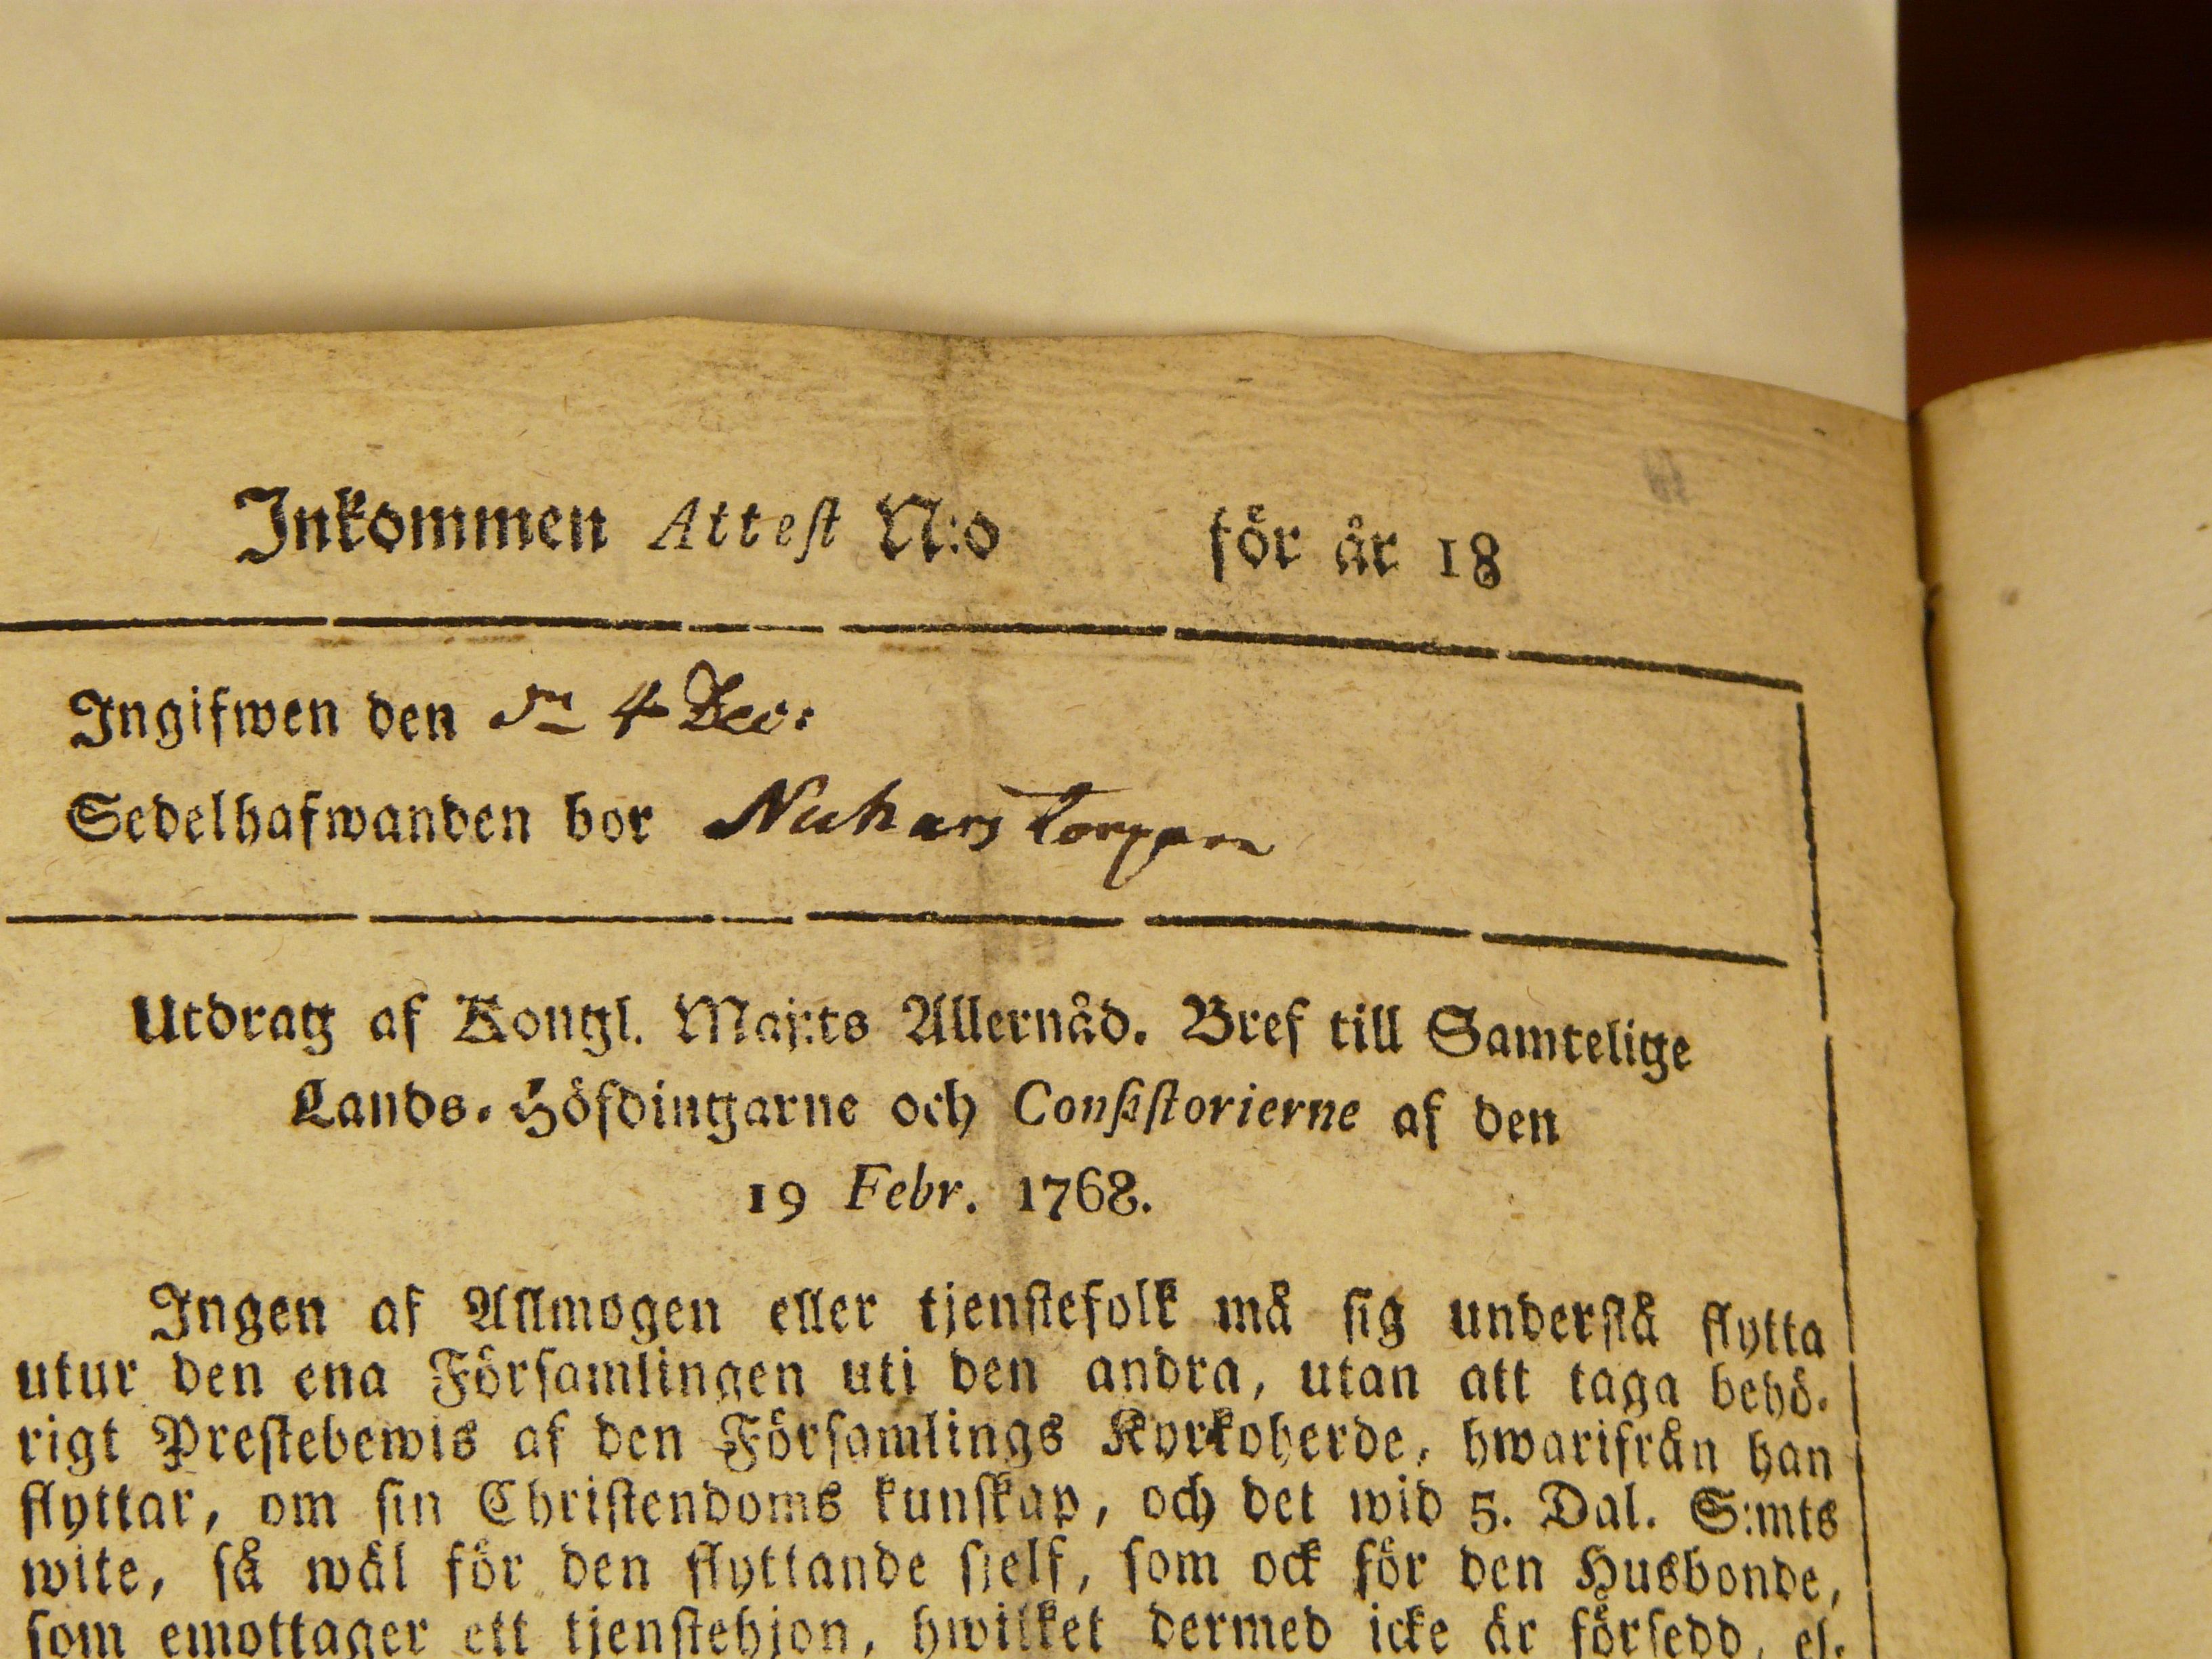 Inkommen Attest N:o för år 18
Ingifwen den dn 4 Dec:
Sedelhafwanden bor
Utdrag af Kongl. Maj:ts Allernåd. Bref till Samtelige
Lands-Höfdingarne och Consistorierne af den
19 Febr. 1768.
Ingen af Allmogen eller tjenstefolk må sig understå flytta
utur den ena Församlingen uti den andra, utan att taga behö-
rigt Prestebewis af den Församlings Kyrkoherde, hwarifrån han
flyttar, om sin Christendoms kunskap, och det wid 5. Dal. S:mts
wite, så wäl för den flyttande sjelf, som ock för den Husbonde,
som emottager ett tjenstehjon, hwilket dermed icke är försedd, el-